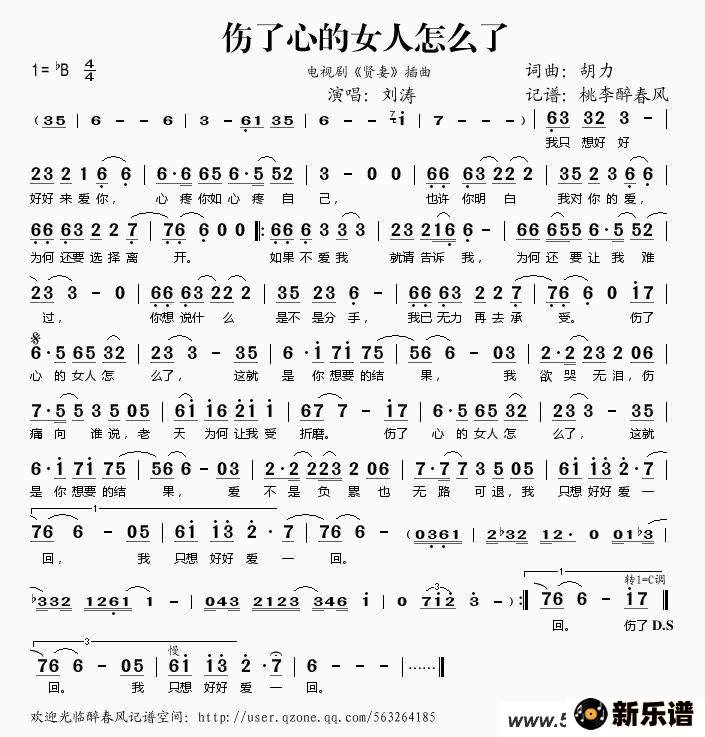 伤了心的女人怎么了
1=♭B 4/4
电视剧《贤妻》插曲
词曲：胡力
演唱：刘涛
记谱：桃李醉春风
(35 | 6 - - 6 | 3 - 61 35 | 6 - - 7i | 7 - - -) | 63 32 3 - |
我只 想好 好
23 21 6 6 | 6·6 65 6·5 52 | 3 - 0 0 | 66 63 22 2 | 35 23 6 6 |
好好 来爱 你， 心疼你如心疼自 己， 也许你明白 我对你的爱，
66 63 2 2 7 | 76 6 0 0 |: 66 6 3 3 3 | 23 216 6 - | 66 655 6·5 52 |
为何还要选择离 开。 如果不爱我 就请告诉我， 为何还要让我难
23 3 - 0 | 66 63 22 2 | 35 23 6 - | 66 63 2 2 7 | 76 6 0 i7 |
过， 你想说什么 是不是分手， 我已无力再去承 受。 伤了
6·5 65 32 | 23 3 - 35 | 6·i 7i 75 | 56 6 - 03 | 2·2 23 2 06 |
心的女人怎 么了， 这就 是你想要的结 果， 我 欲哭无泪，伤
7·5 5 3 5 05 | 6i i6 2i i | 67 7 - i7 | 6·5 65 32 | 23 3 - 35 |
痛向谁说，老 天为何让我受 折磨。 伤了 心的女人怎 么了， 这就
6·i 7i 75 | 56 6 - 03 | 2·2 223 2 06 | 7 7 3 5 05 | 6i i3 2·7 |
是你想要的结 果， 爱 不是负累也 无路可退，我 只想好好爱一
1
76 6 - 05 | 6i i3 2·7 | 76 6 - - | (0361 | 2♭32 12· 0 01♭3 |
回， 我 只想好好爱一 回。
♭332 1261 1 - | 043 2123 346 i | 0 7i2 3 -) :| 76 6 - i7 ‖
3
1
转1=C调
回。 伤了 D.S
3
慢
76 6 - 05 | 6i i3 2·7 | 6 - - - |……‖
回。 我 只想好好爱一 回。
欢迎光临醉春风记谱空间：http://user.qzone.qq.com/563264185
www.5
新乐谱